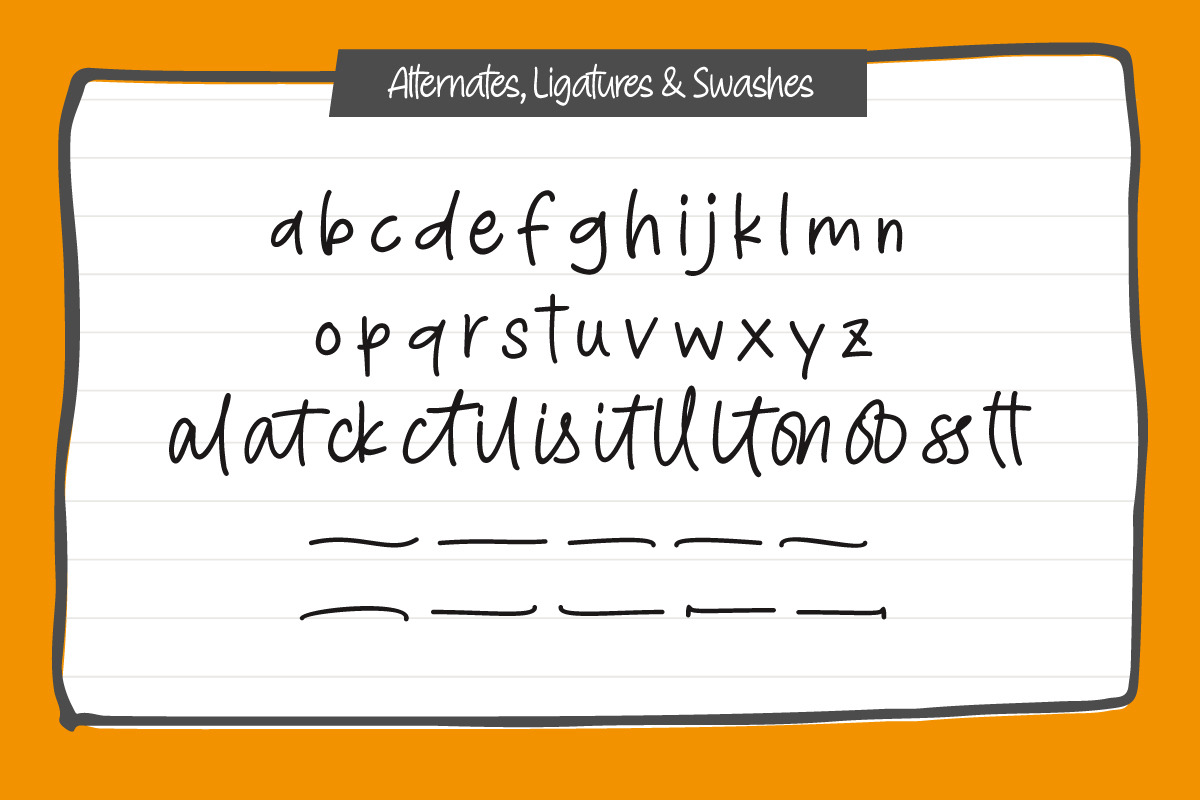 Alternates, Ligatures & Swashes
a b c d e f g h i j k l m n
o p q r s t u v w x y z
al at ck ct il is it ll lt on oo ss tt